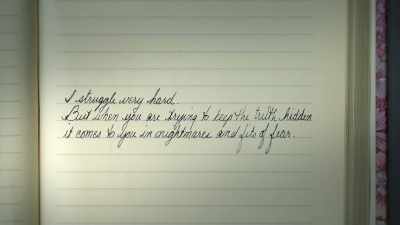 I struggle very hard.
But when you are trying to keep the truth hidden
it comes to you in nightmares and fits of fear.